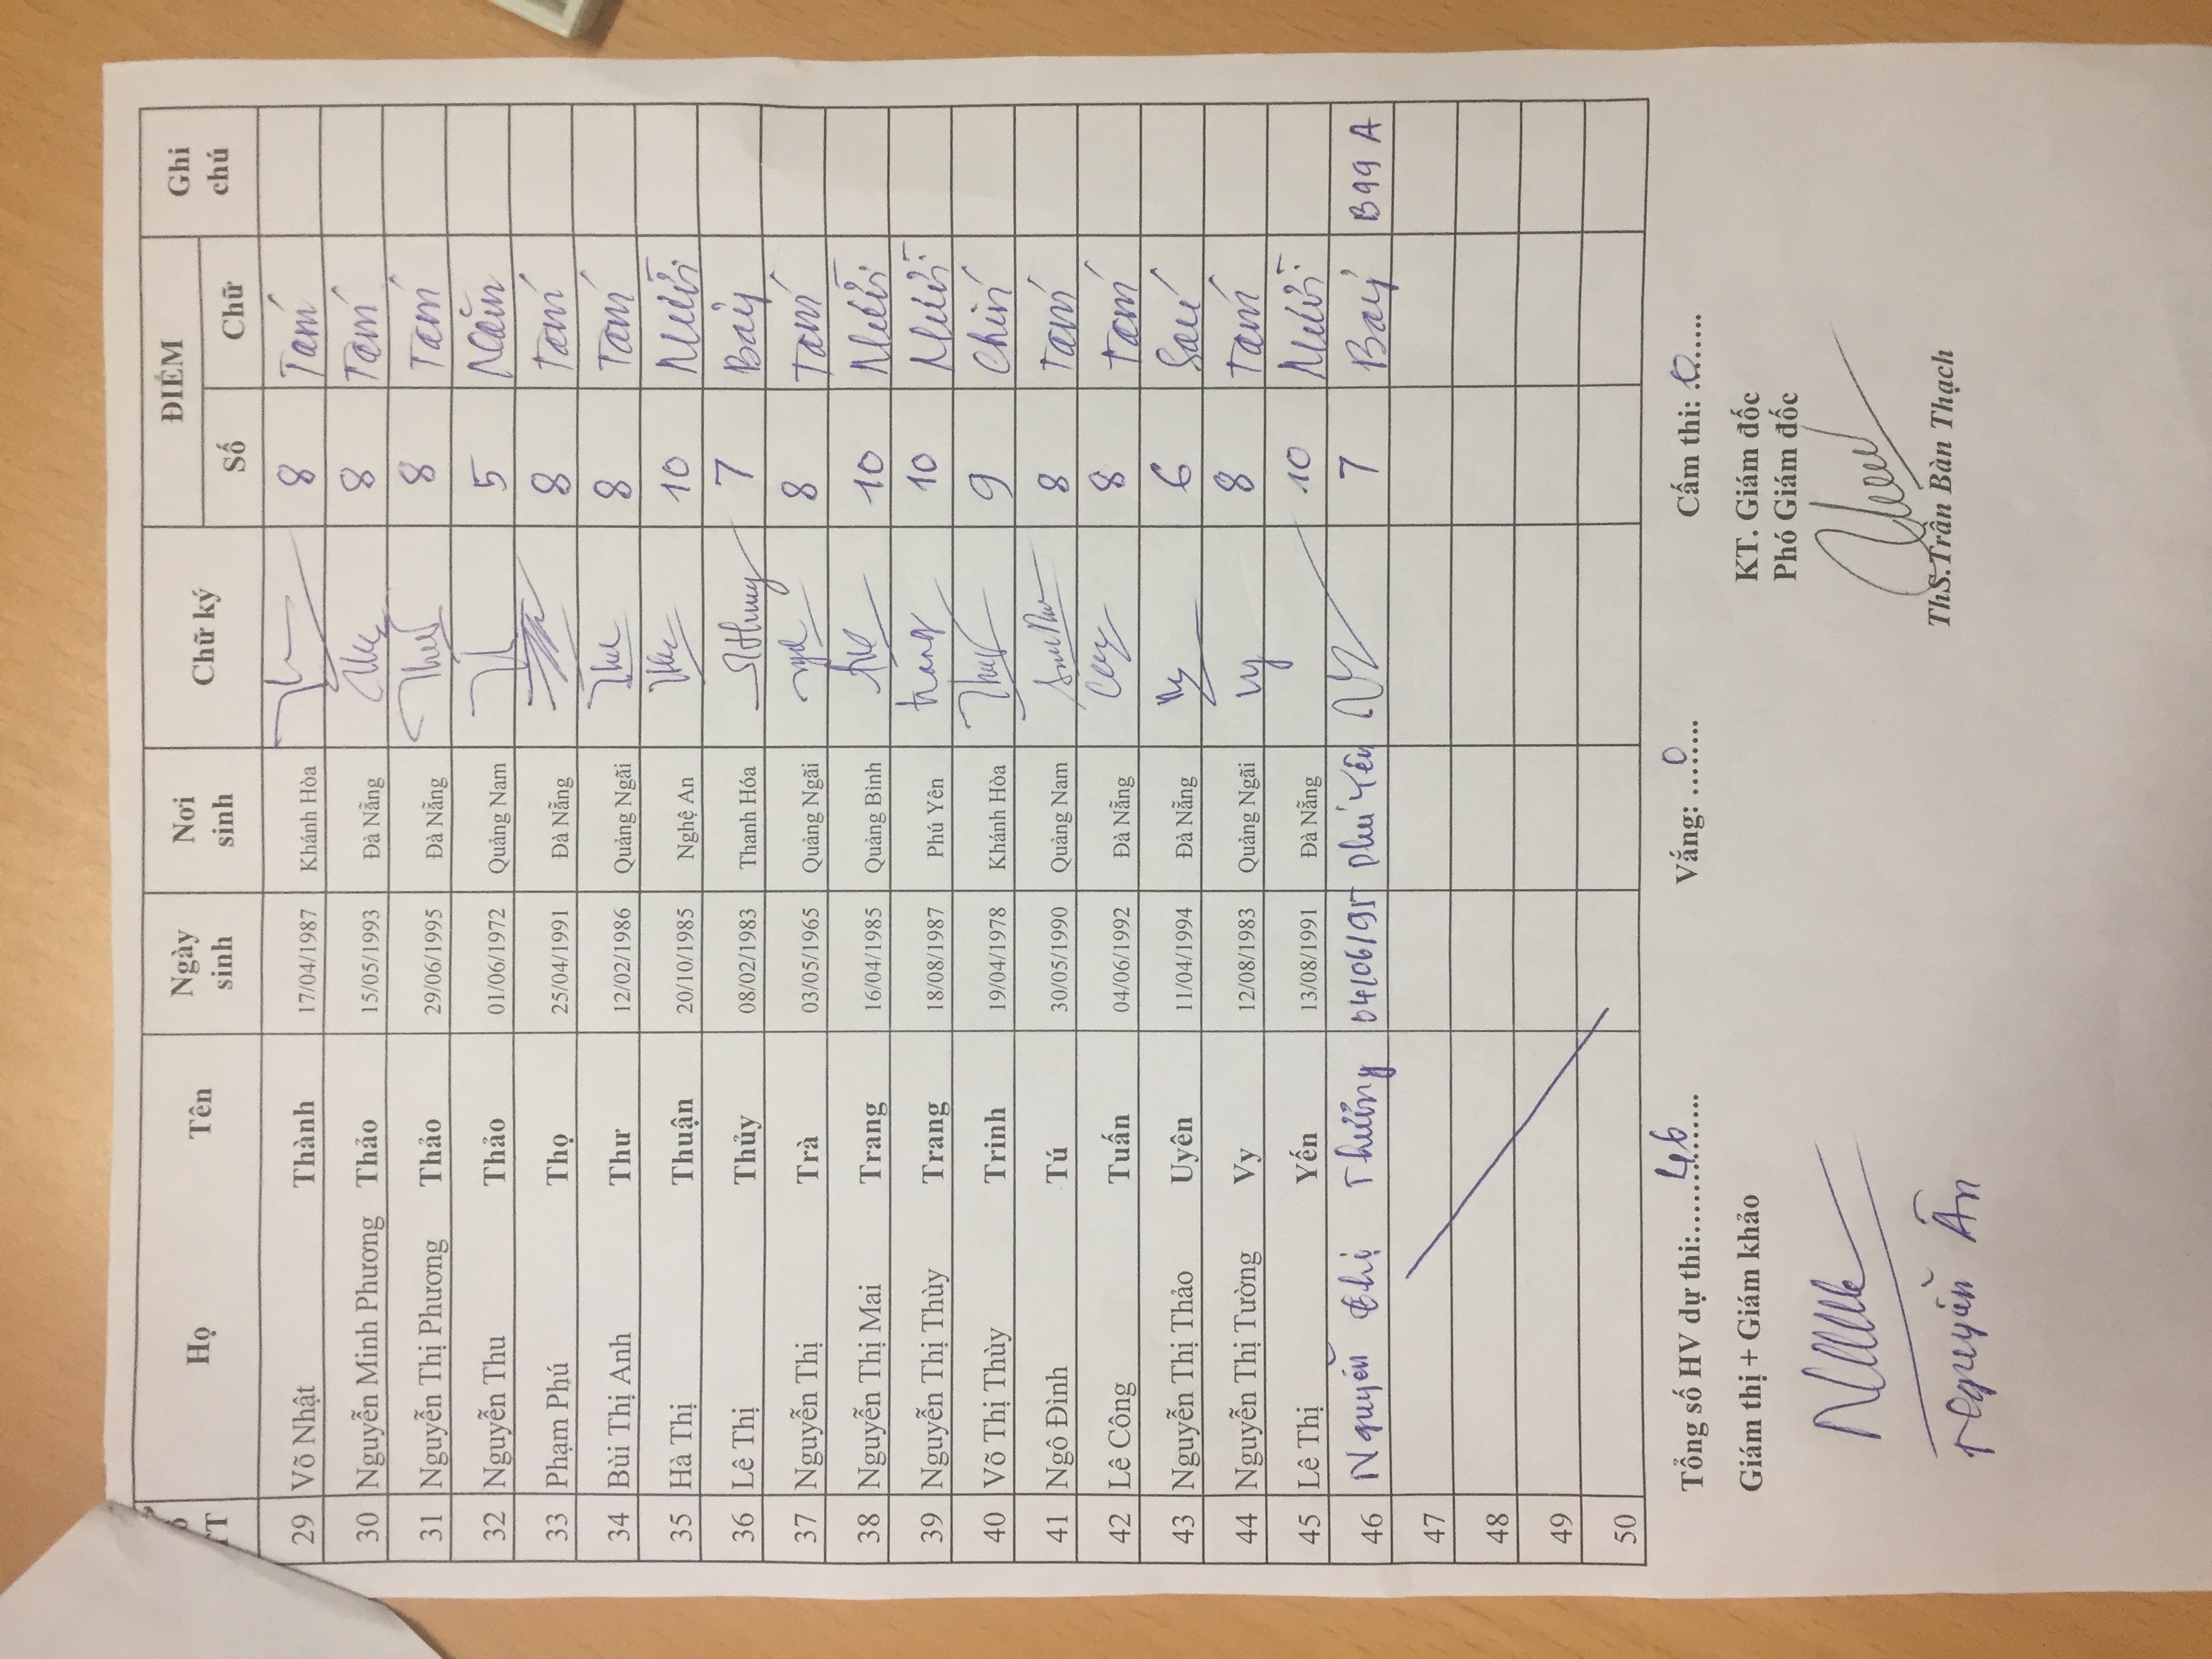 TT Họ Tên Ngày sinh Nơi sinh Chữ ký ĐIỂM Ghi chú
Số Chữ
29 Võ Nhật Thành 17/04/1987 Khánh Hòa 8 Tám
30 Nguyễn Minh Phương Thảo 15/05/1993 Đà Nẵng 8 Tám
31 Nguyễn Thị Phương Thảo 29/06/1995 Đà Nẵng 8 Tám
32 Nguyễn Thu Thảo 01/06/1972 Quảng Nam 5 Năm
33 Phạm Phú Thọ 25/04/1991 Đà Nẵng 8 Tám
34 Bùi Thị Anh Thư 12/02/1986 Quảng Ngãi 8 Tám
35 Hà Thị Thuận 20/10/1985 Nghệ An 10 Mười
36 Lê Thị Thủy 08/02/1983 Thanh Hóa 7 Bảy
37 Nguyễn Thị Trà 03/05/1965 Quảng Ngãi 8 Tám
38 Nguyễn Thị Mai Trang 16/04/1985 Quảng Bình 10 Mười
39 Nguyễn Thị Thùy Trang 18/08/1987 Phú Yên trang 10 Mười
40 Võ Thị Thùy Trinh 19/04/1978 Khánh Hòa 9 Chín
41 Ngô Đình Tú 30/05/1990 Quảng Nam 8 Tám
42 Lê Công Tuấn 04/06/1992 Đà Nẵng 8 Tám
43 Nguyễn Thị Thảo Uyên 11/04/1994 Đà Nẵng 6 Sáu
44 Nguyễn Thị Tường Vy 12/08/1983 Quảng Ngãi Vy 8 Tám
45 Lê Thị Yến 13/08/1991 Đà Nẵng 10 Mười
46 Nguyễn Thị Thưởng 04/06/95 Phú Yên 7 Bảy B99 A
47
48
49
50
Tổng số HV dự thi:........46....... Vắng: .....0..... Cấm thi: .0.....
Giám thị + Giám khảo KT. Giám đốc
Phó Giám đốc
Nguyễn Ân ThS.Trần Bàn Thạch